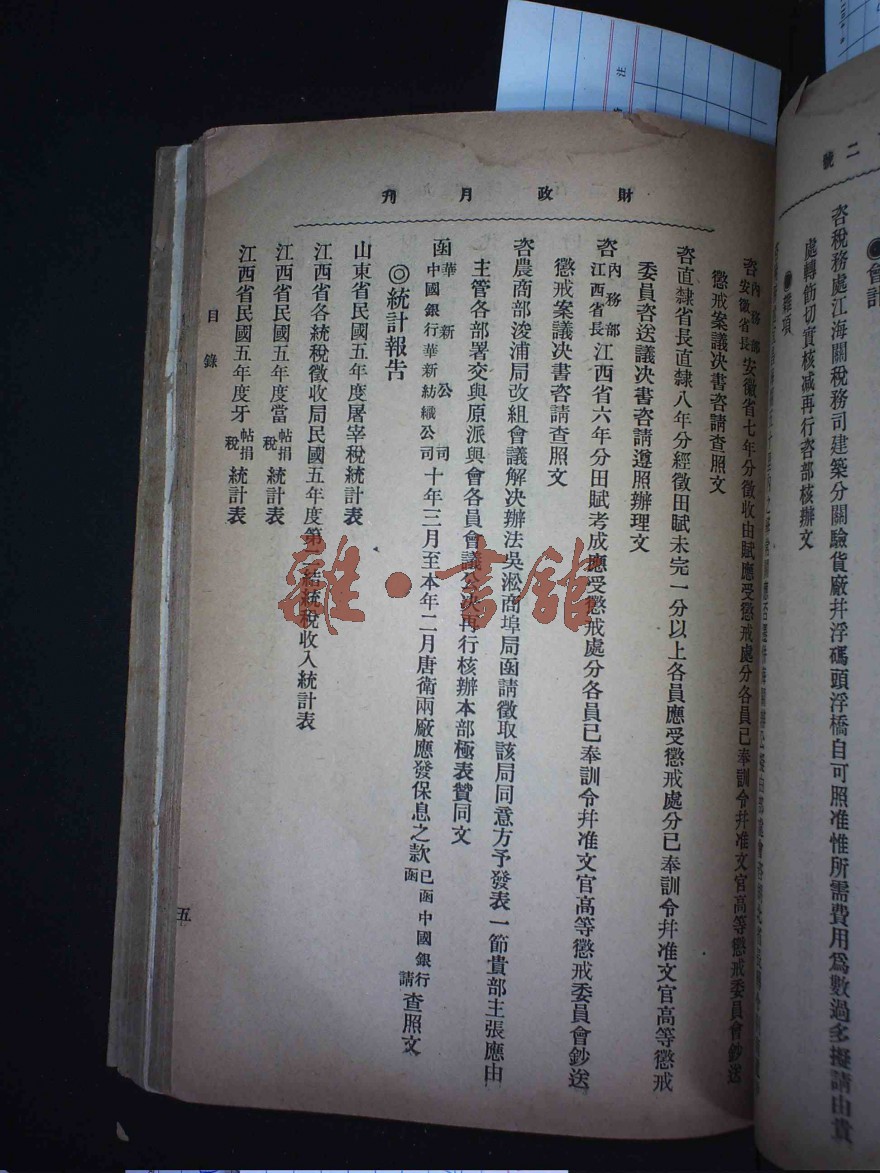 二號
●會計
咨稅務處江海關稅務司建築分關驗貨廠幷浮碼頭浮橋自可照准惟所需費用爲數過多擬請由貴
處轉飭切實核减再行咨部核辦文
●雜項
財政月刊
咨內務部安徽省長安徽省七年分徵收田賦應受懲戒處分各員已奉訓令幷准文官高等懲戒委員會鈔送
懲戒案議决書咨請查照文
咨直隸省長直隸八年分經徵田賦未完一分以上各員應受懲戒處分已奉訓令幷准文官高等懲戒
委員咨送議决書咨請遵照辦理文
咨內務部江西省長江西省六年分田賦考成應受懲戒處分各員已奉訓令幷准文官高等懲戒委員會鈔送
懲戒案議决書咨請查照文
咨農商部浚浦局改組會議解决辦法吳淞商埠局函請徵取該局同意方予發表一節貴部主張應由
主管各部署交與原派與會各員會議公决再行核辦本部極表贊同文
函華新公司中國銀行華新紡織公司十年三月至本年二月唐衛兩廠應發保息之款已函中國銀行函請查照文
◎統計報告
山東省民國五年度屠宰稅統計表
江西省各統稅徵收局民國五年度第一結統稅收入統計表
江西省民國五年度當帖捐稅統計表
江西省民國五年度牙帖捐稅統計表
目錄
五
雜·書館
注